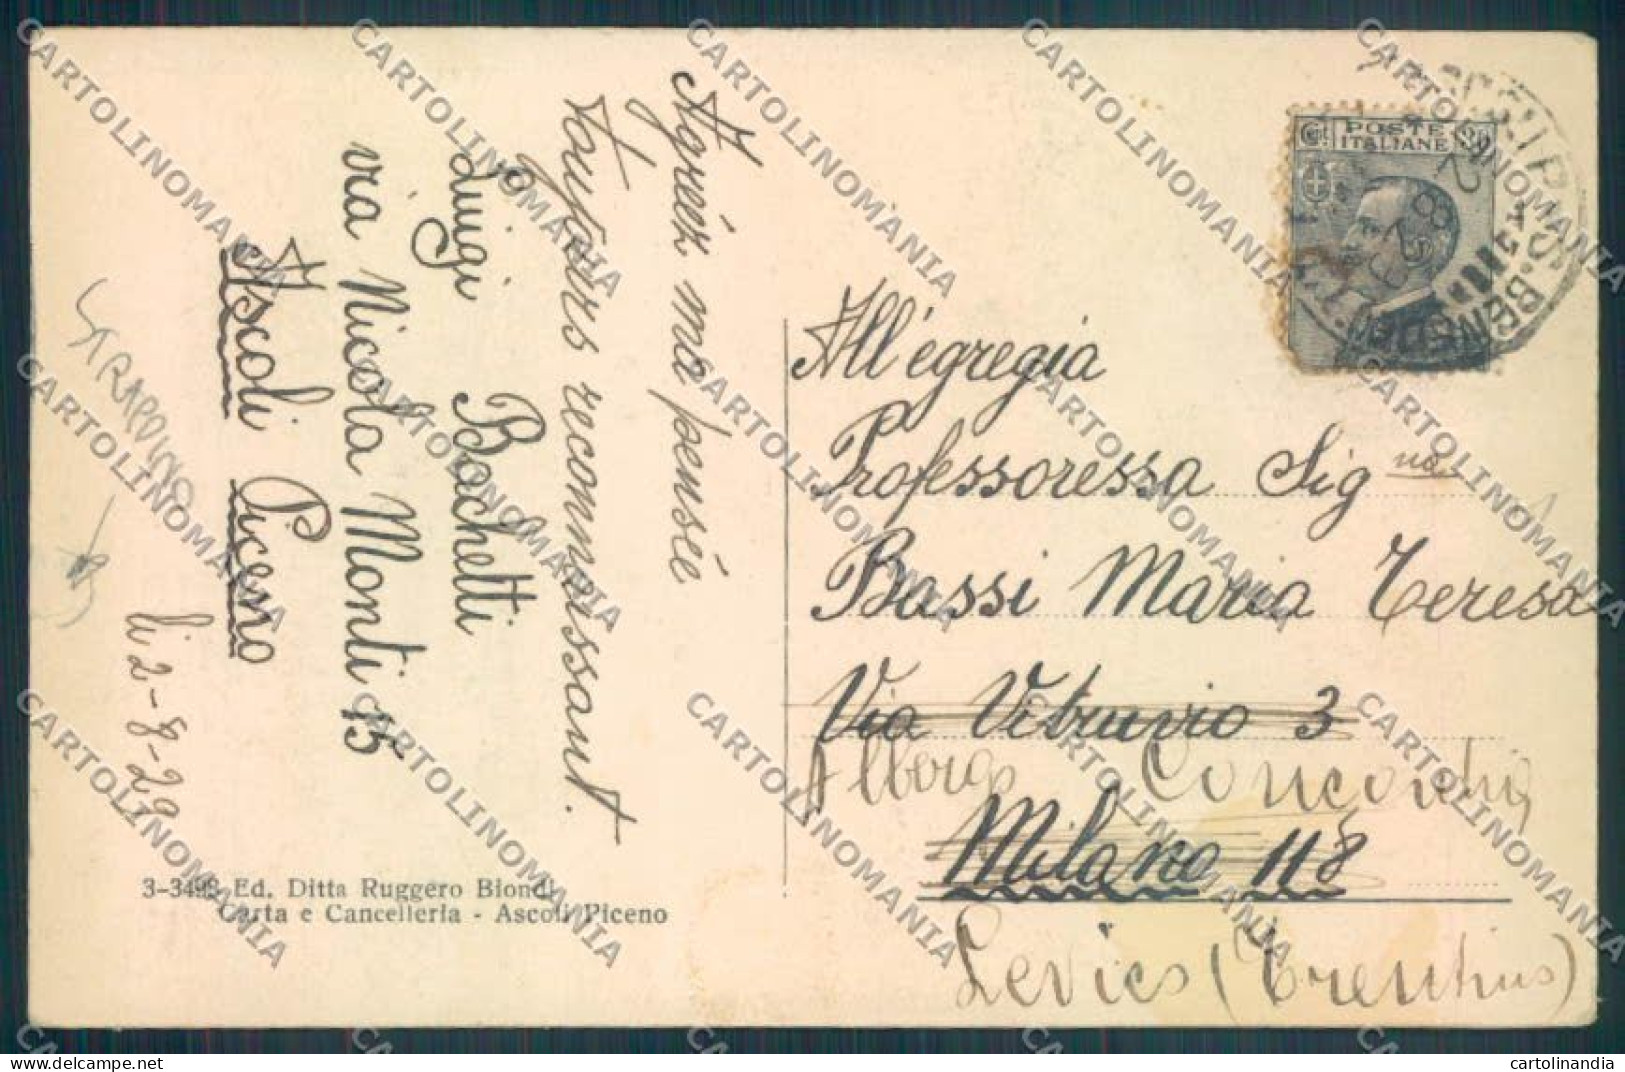 Agréér ma pensée
Toujours reconnaissant.
Luigi Bachetti
via Nicola Monti 15
Ascoli Piceno
li 2-8-29
STRAPPINO
3-3498 Ed. Ditta Ruggero Biondi
Carta e Cancelleria - Ascoli Piceno
POSTE
ITALIANE
All'egregia
Professoressa Sig na
Bassi Maria Teresa
Via Vitruvio 3
Albergo Concordia
Milano 118
Levico (Trentino)
CARTOLINOMANIA
cartolinandia